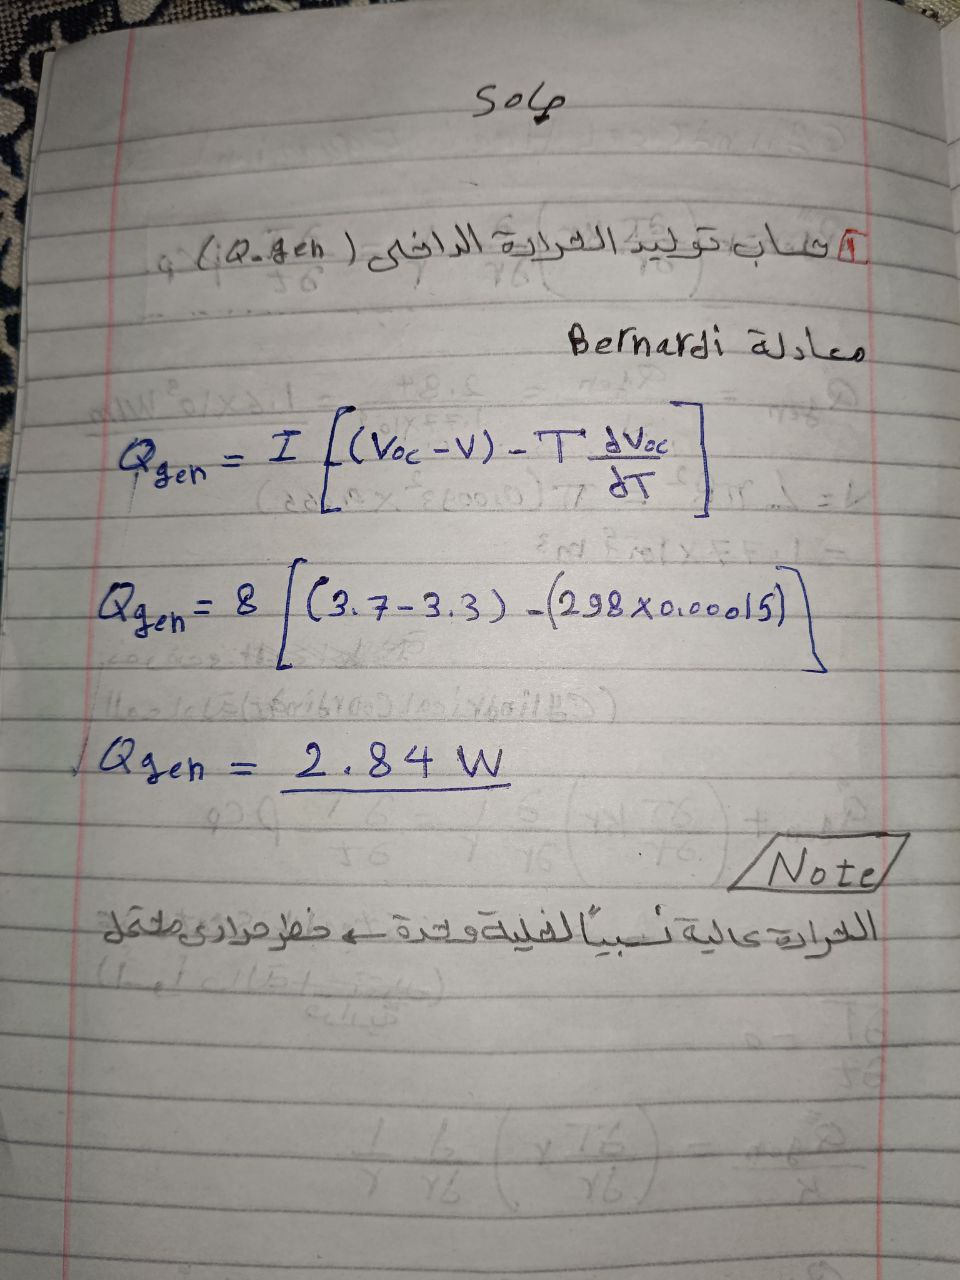 Sol
1 حساب توليد الحرارة الداخلى (Q.gen)
معادلة Bernardi
Qgen = I [(Voc - V) - T dVoc/dT]
Qgen = 8 [(3.7-3.3) - (298×0.00015)]
Qgen = 2.84 W
Note
الحرارة عالية نسبياً لخلية وحدة ← خطر حرارى محتمل